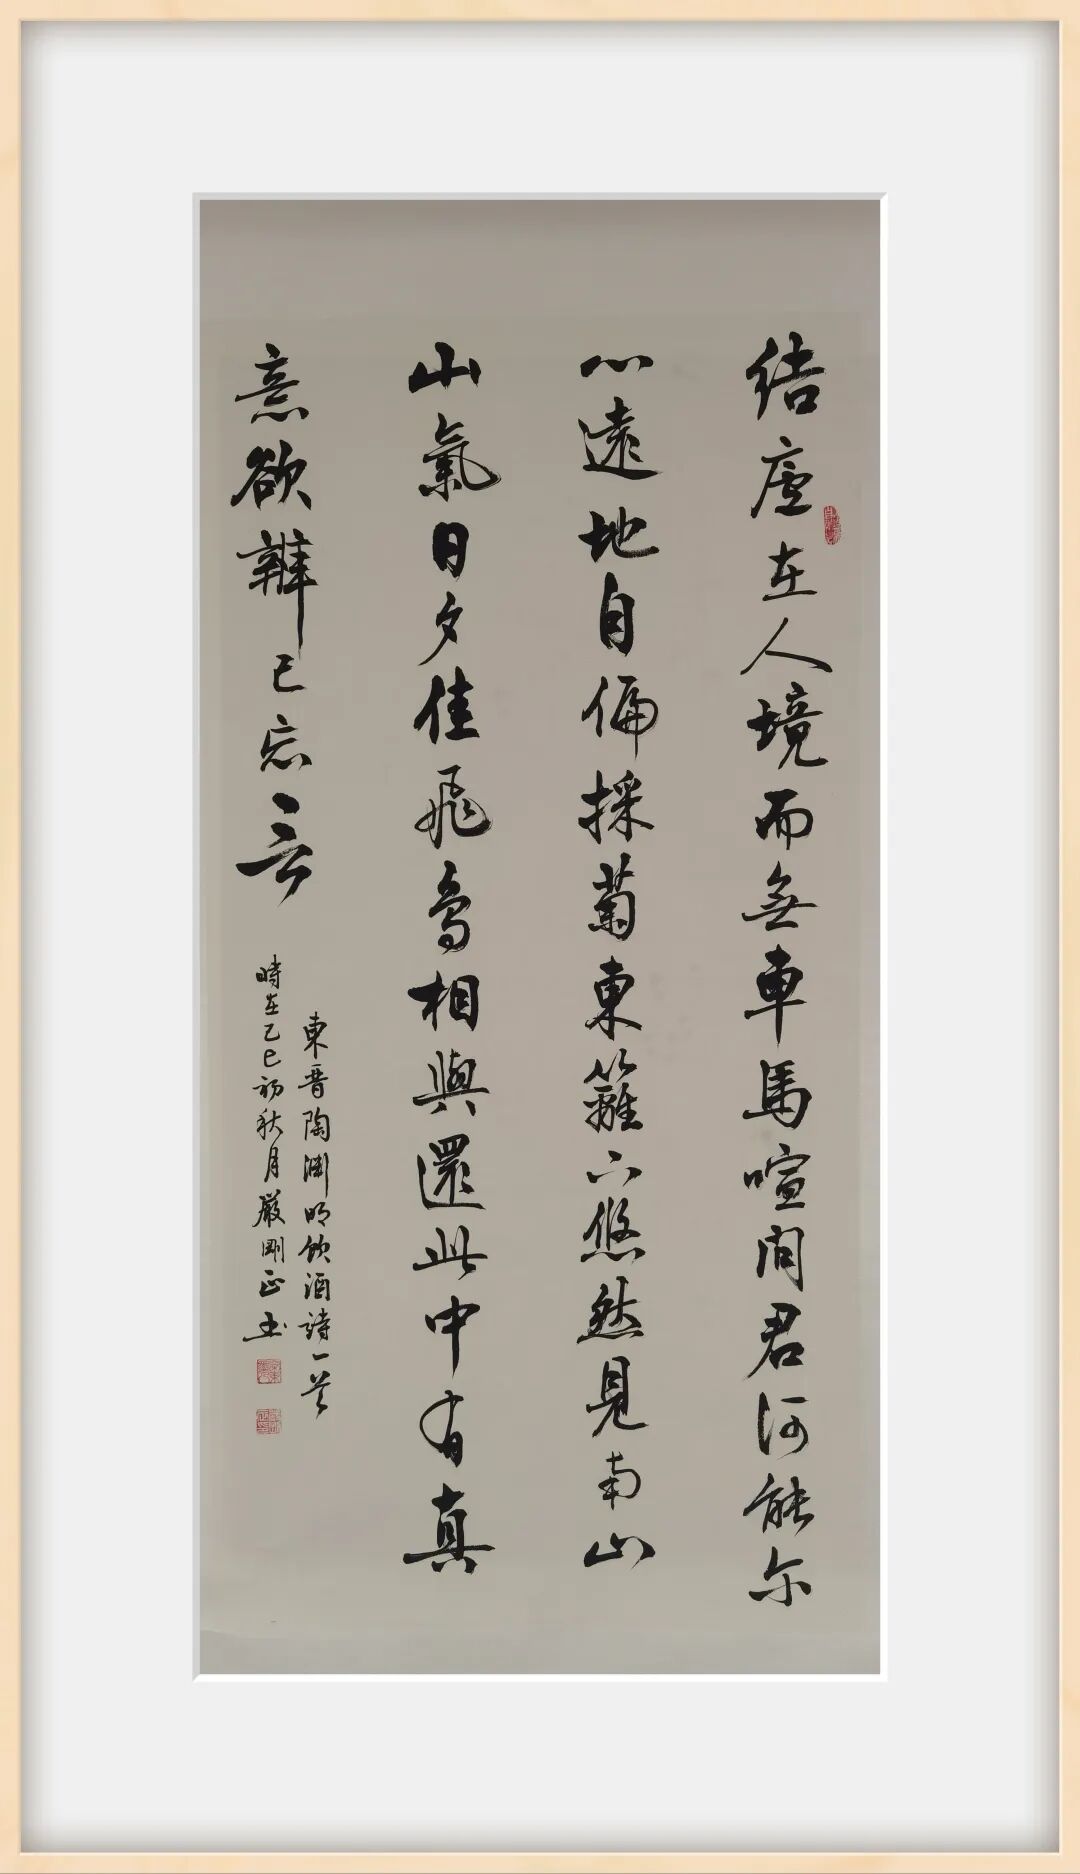 結廬在人境而無車馬喧问君何能尔
心遠地自偏採菊東籬下悠然見南山
山氣日夕佳飛鳥相與還此中有真
意欲辨已忘言
東晋陶渊明飲酒詩一首
時在乙巳初秋月嚴剛正书